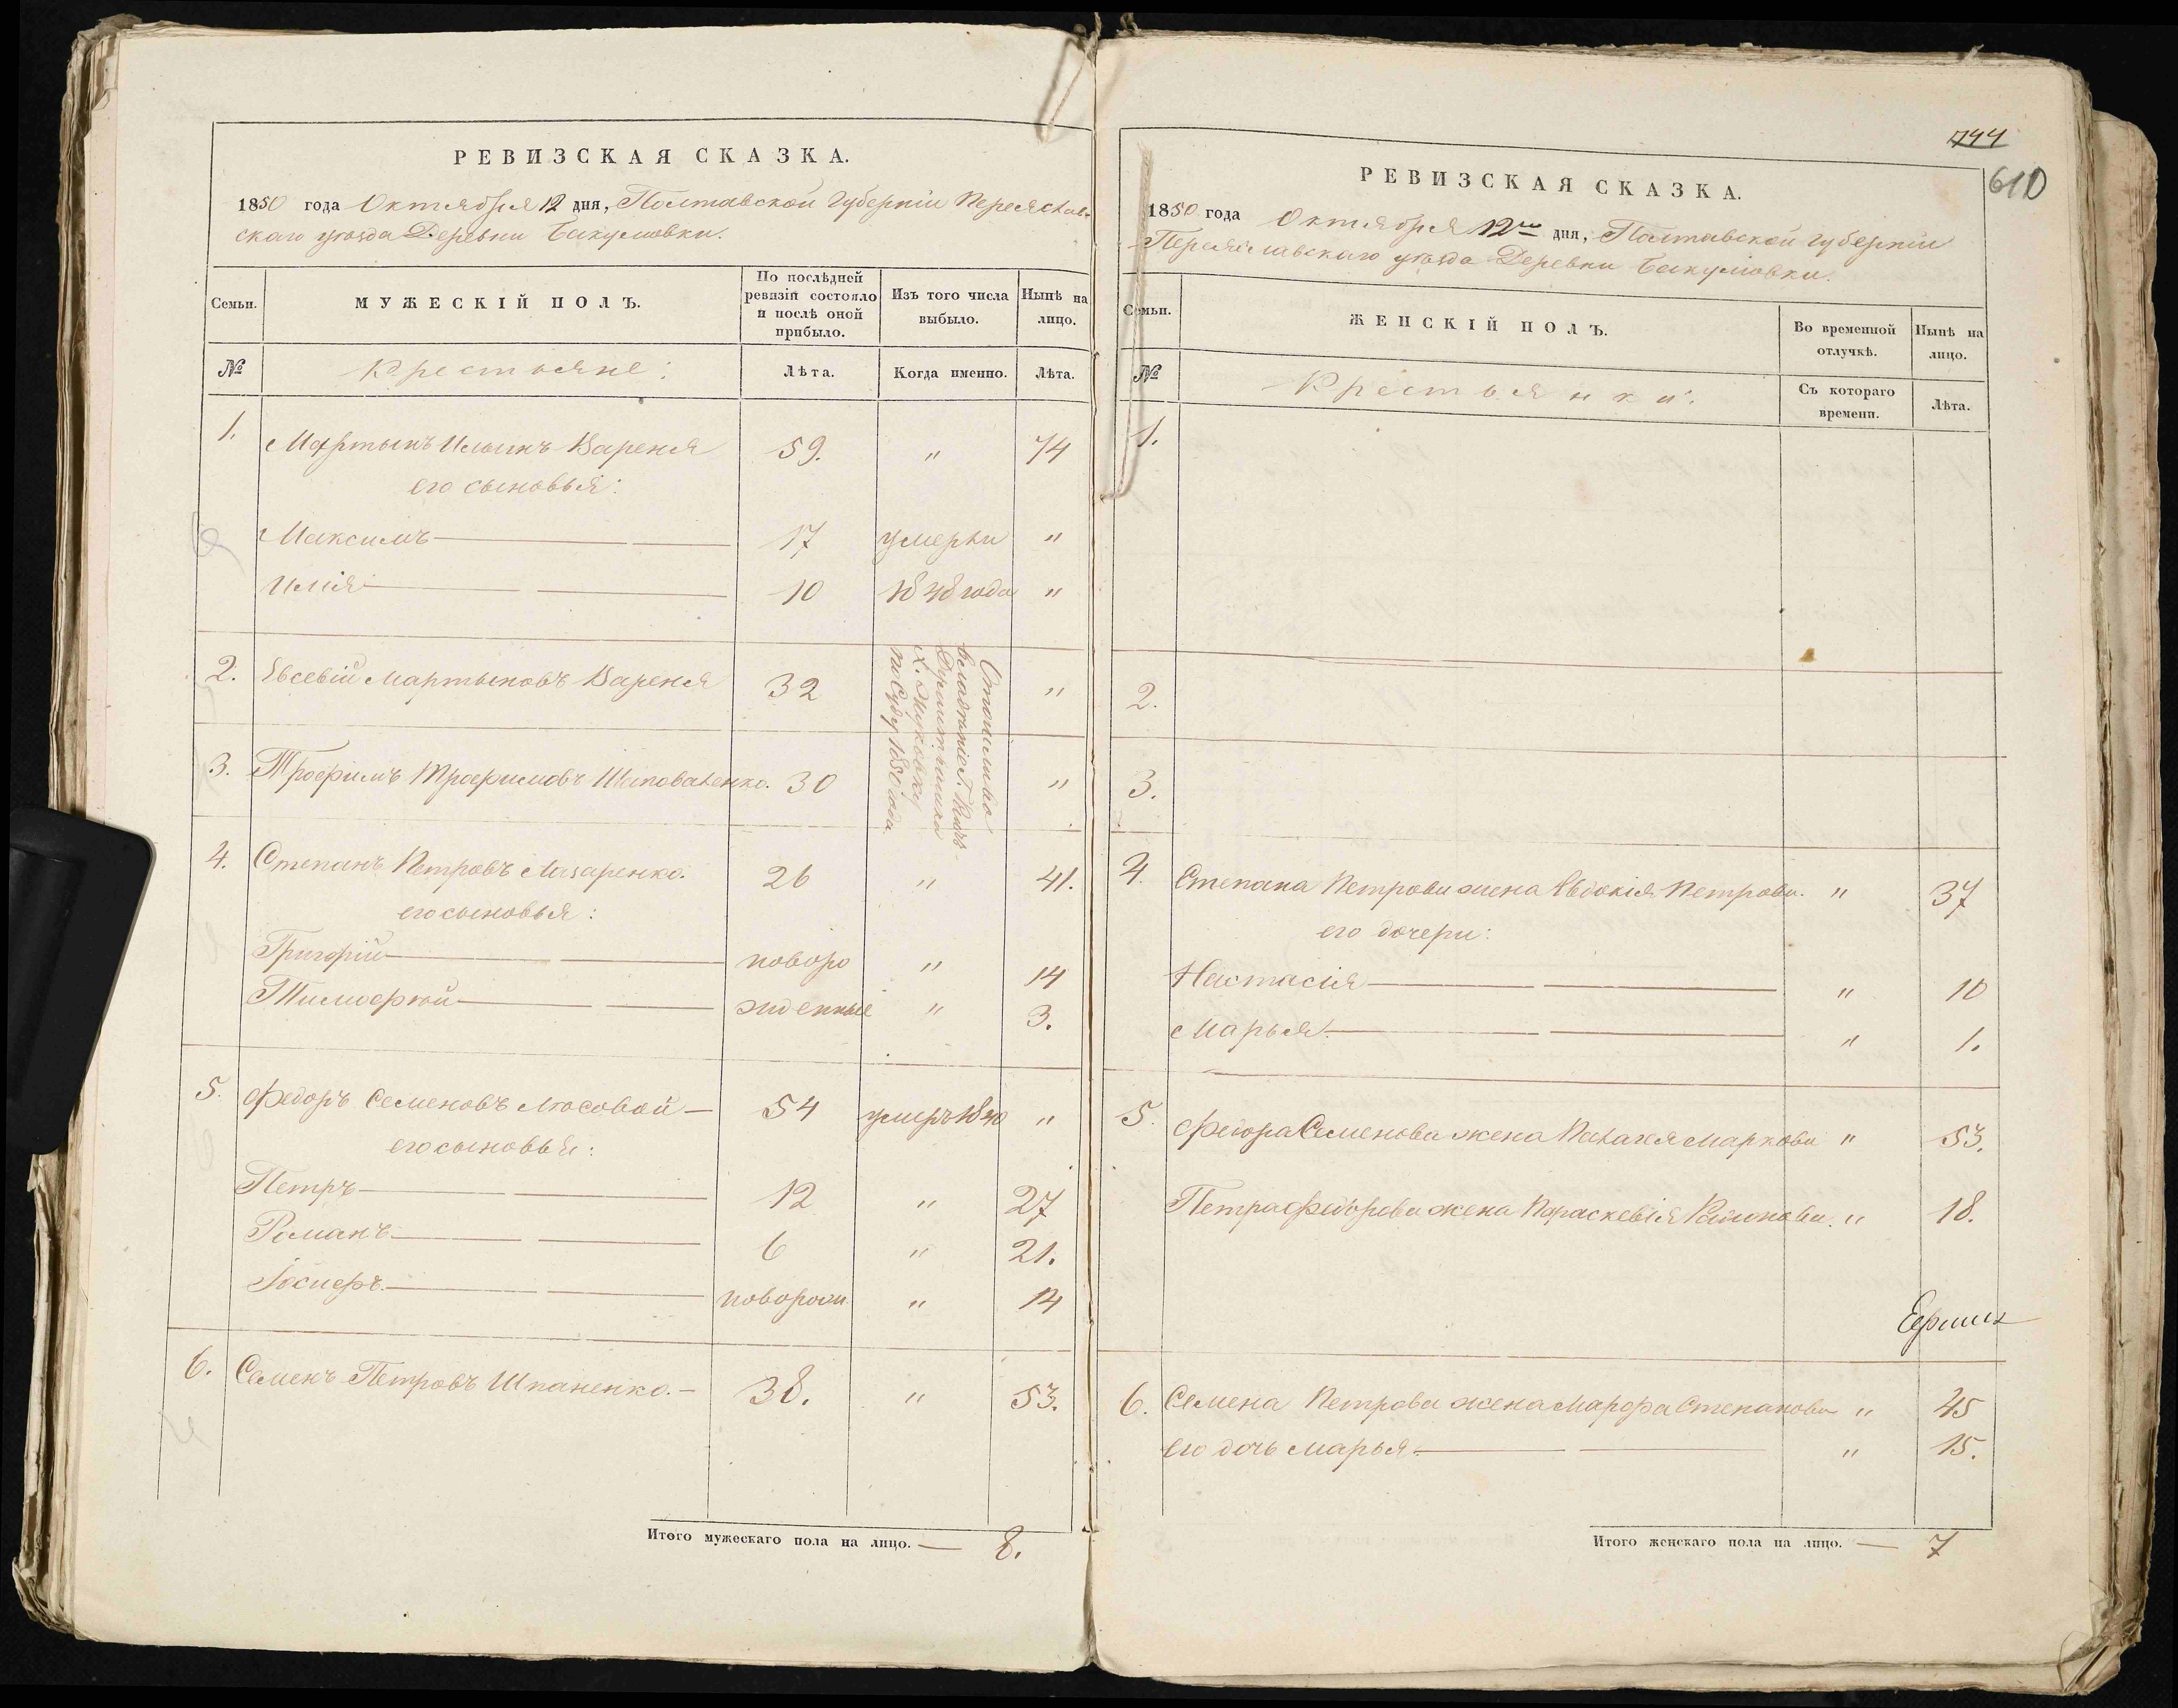 РЕВИЗСКАЯ СКАЗКА.
1850 года Октября 12 дня, Полтавской Губерніи Переяслав-
скаго уѣзда Деревни Бакумовки.
Семьи. МУЖЕСКІЙ ПОЛЪ. По послѣдней ревизіи состояло и послѣ оной прибыло. Изъ того числа выбыло. Нынѣ на лицо.
№ Крестьяне: Лѣта. Когда именно. Лѣта.
1. Мартынъ Ильинъ Вареня 59. " 74
его сыновья:
Максимъ 17 умерли "
Илія 10 1848 года "
2. Евсевій Мартыновъ Вареня 32 "
3. Трофимъ Трофимовъ Шаповаленко. 30 "
Отошли во
владѣніе Г. Княз-
по Суду 1850 года
4. Степанъ Петровъ Лазаренко. 26 " 41.
его сыновья:
Григорій новоро " 14
Тимофей жденные " 3.
5. Федоръ Семеновъ Лосовой 54 умеръ 1840 "
его сыновья:
Петръ 12 " 27
Романъ 6 " 21.
Іосифъ новорож " 14
6. Семенъ Петровъ Шпаненко. 38. " 53.
Итого мужескаго пола на лицо. — 8.
744
610
РЕВИЗСКАЯ СКАЗКА.
1850 года Октября 12го дня, Полтавской Губерніи
Переяславскаго уѣзда Деревни Бакумовки.
Семьи. ЖЕНСКІЙ ПОЛЪ. Во временной отлучкѣ. Нынѣ на лицо.
№ Крестьянки: Съ котораго времени. Лѣта.
1.
2.
3.
4. Степана Петрова жена Евдокія Петрова. " 37
его дочери:
Настасія " 10
Марья " 1.
5. Федора Семенова жена Палагея Маркова " 53.
Петра Федорова жена Параскевія " 18.
6. Семена Петрова жена Марфа Степанова " 45
его дочь Марья " 15.
Итого женскаго пола на лицо. — 7